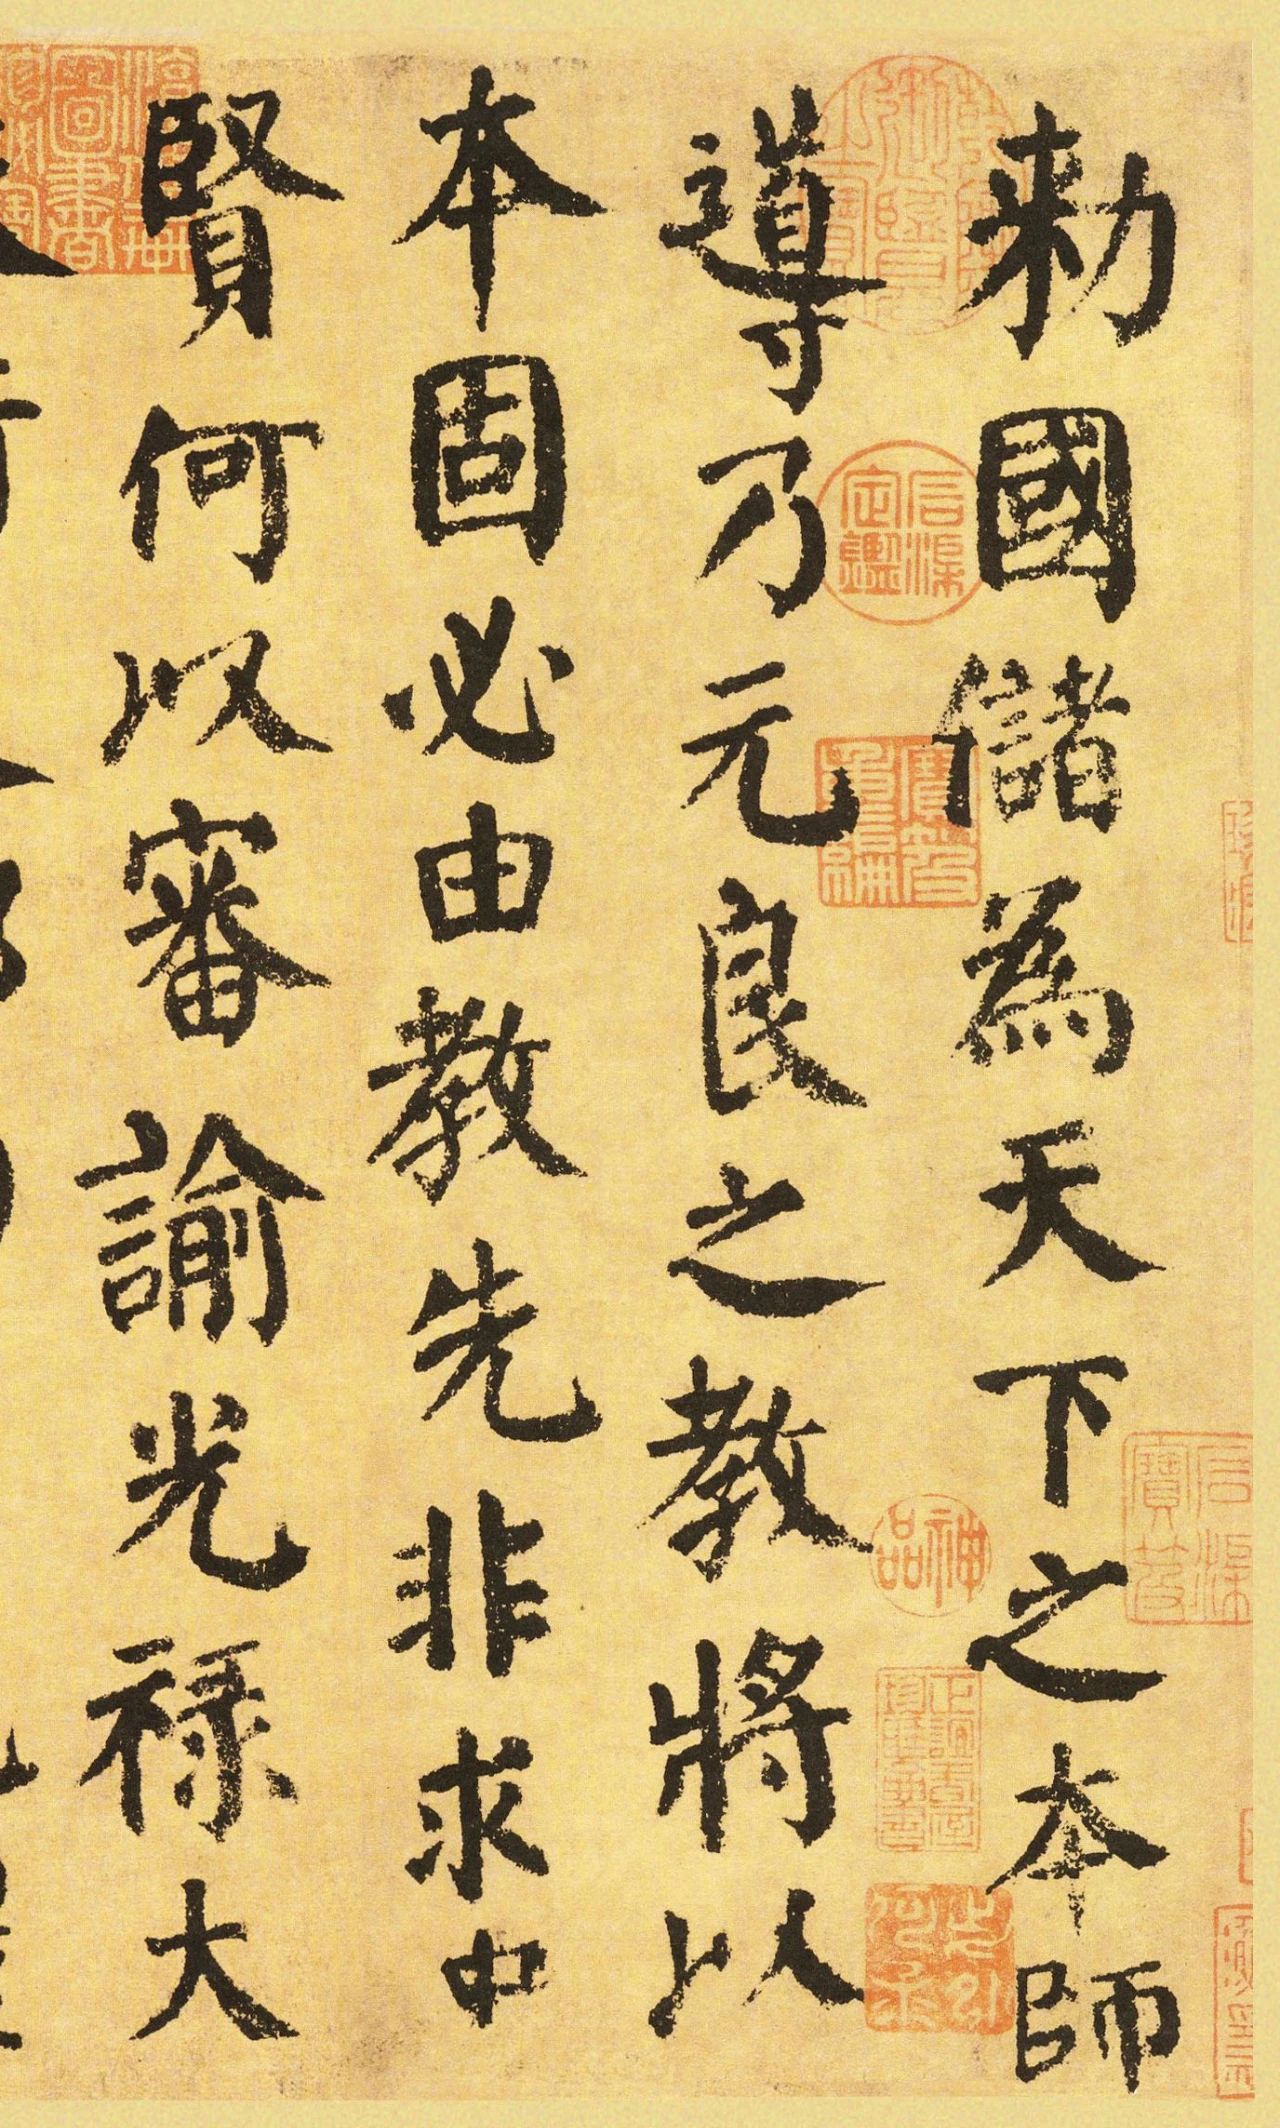 勅國儲為天下之本師
導乃元良之教將以
本固必由教先非求中
賢何以審諭光祿大
神品